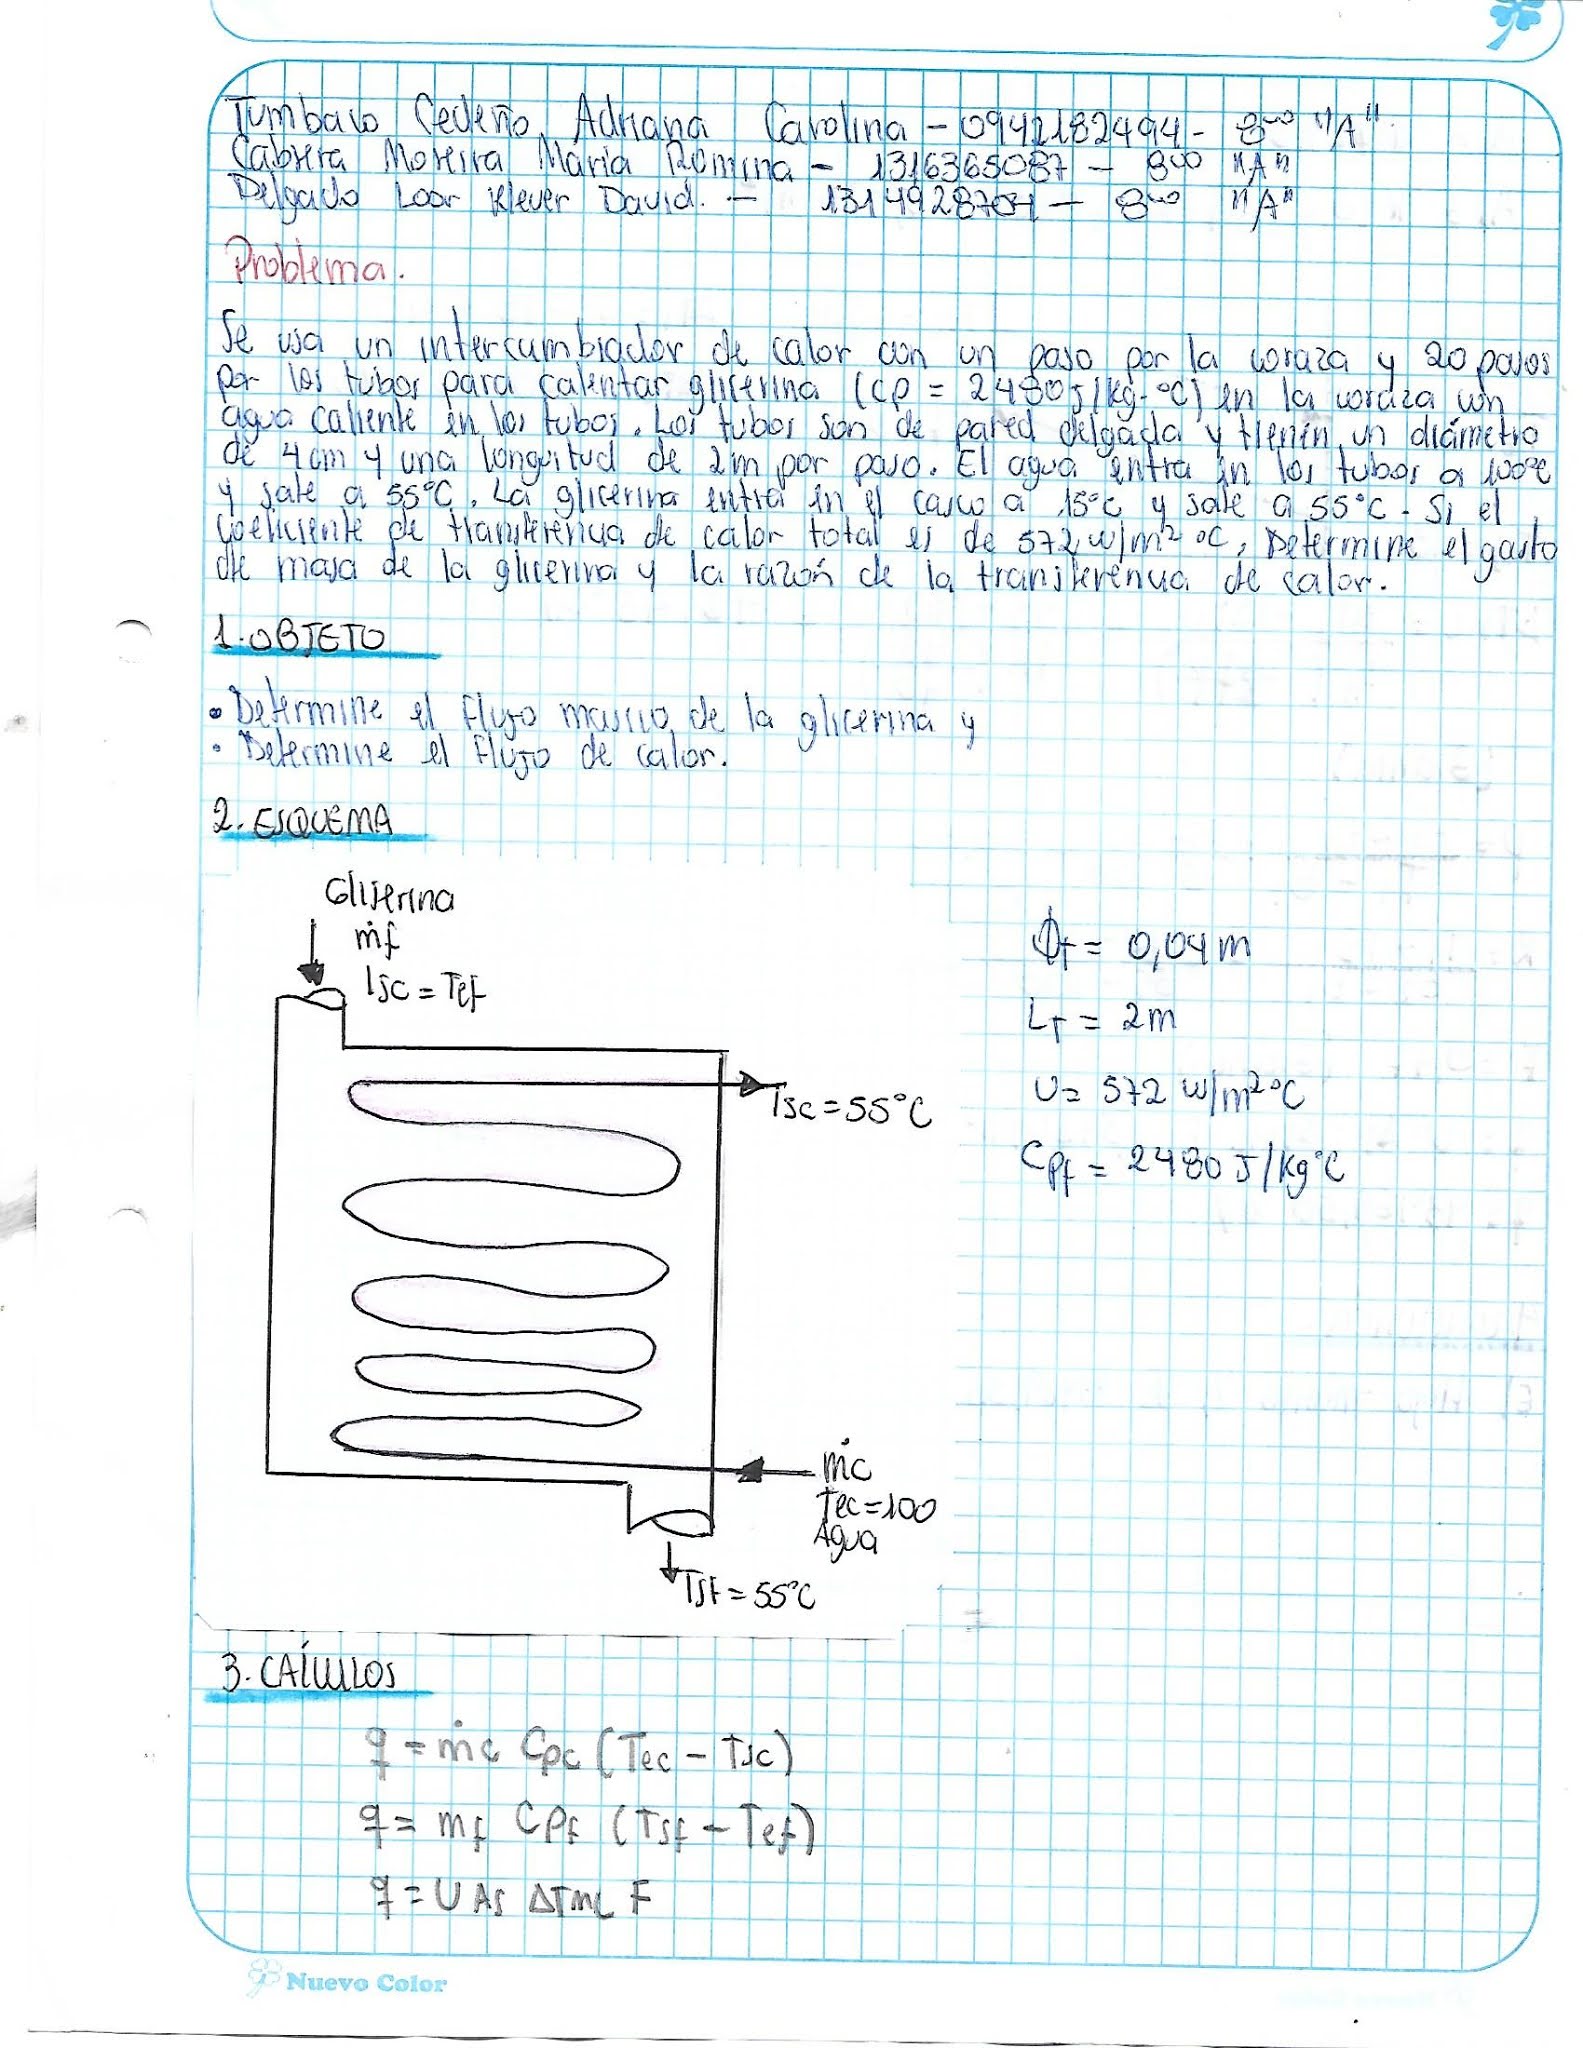 Tumbaco Cedeño Adriana Carolina - 0942182494 - 8vo "A"
Cabrera Moreira Maria Romina - 1316365087 - 8vo "A"
Delgado Loor Klever David. - 8vo "A"
Problema.
Se usa un intercambiador de calor con un paso por la coraza y 20 pasos
por los tubos para calentar glicerina (cp = 2480 J/kg·°C) en la coraza con
agua caliente en los tubos. Los tubos son de pared delgada y tienen un diámetro
de 4cm y una longuitud de 2m por paso. El agua entra en los tubos a 100°c
y sale a 55°C. La glicerina entra en el casco a 15°c y sale a 55°C. Si el
coeficiente de transferencia de calor total es de 572 w/m² °C, Determine el gasto
de masa de la glicerina y la razón de la transferencia de calor.
1. OBJETO
• Determine el flujo masico de la glicerina y
• Determine el flujo de calor.
2. ESQUEMA
Gliserina
ṁf
Tsc = Tef
ϕT = 0,04 m
LT = 2m
U = 572 w/m²°C
Cpf = 2480 J/Kg°C
Tsc = 55°C
ṁc
Tec=100
Agua
Tsf = 55°C
3. CÁLCULOS
q = ṁc Cpc (Tec - Tsc)
q = mf Cpf (Tsf - Tef)
q = U As ΔTmL F
Nuevo Color